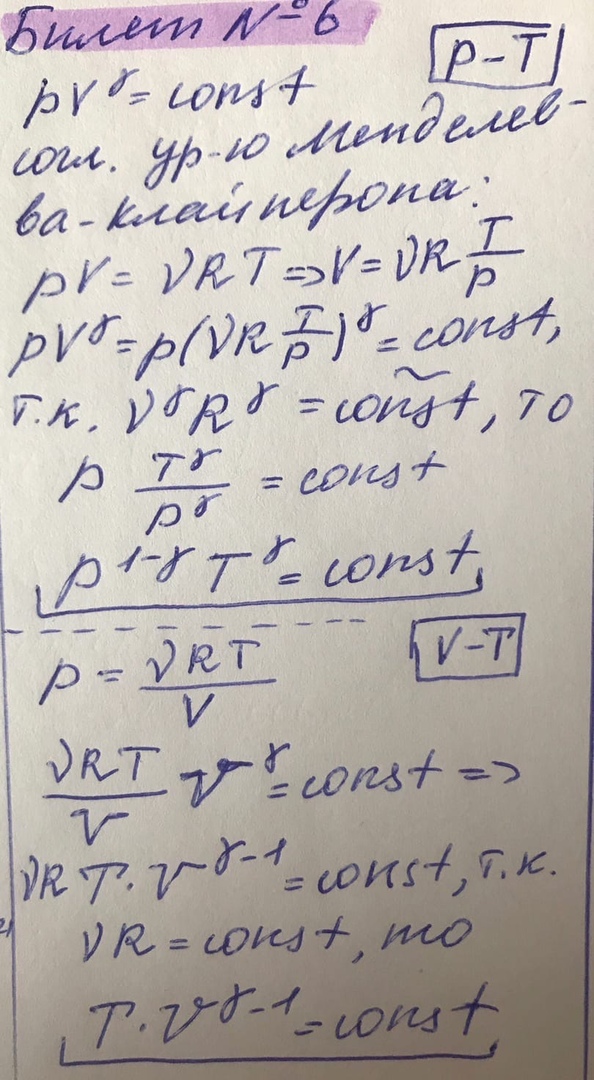 Билет №6
p-T
pV^γ = const
согл. ур-ю Менделее-
ва-клайперона:
pV = νRT => V = νR T/p
pV^γ = p(νR T/p)^γ = const,
т.к. ν^γ R^γ = const, то
p T^γ/p^γ = const
p^(1-γ) T^γ = const
V-T
p = νRT/V
νRT/V V^γ = const =>
νRT·V^(γ-1) = const, т.к.
νR = const, то
T·V^(γ-1) = const